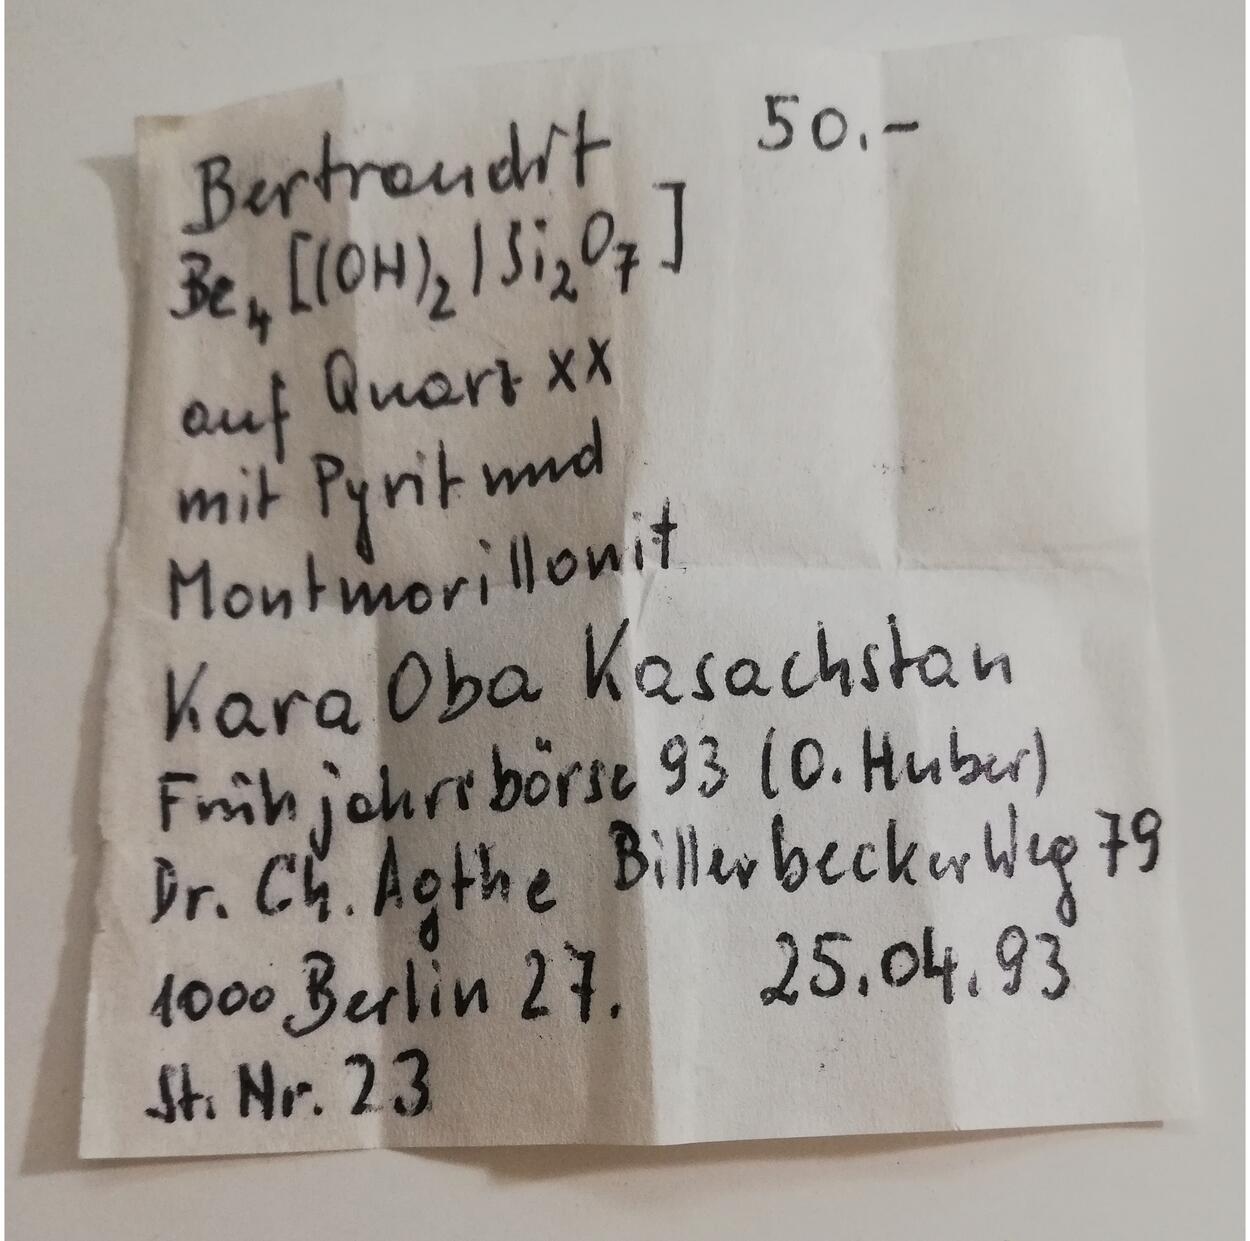 Bertrandit 50.-
Be₄ [(OH)₂ | Si₂O₇]
auf Quarz xx
mit Pyrit und
Montmorillonit
Kara Oba Kasachstan
Frühjahrsbörse 93 (O. Huber)
Dr. Ch. Agthe Billerbecker Weg 79
1000 Berlin 27. 25.04.93
St. Nr. 23